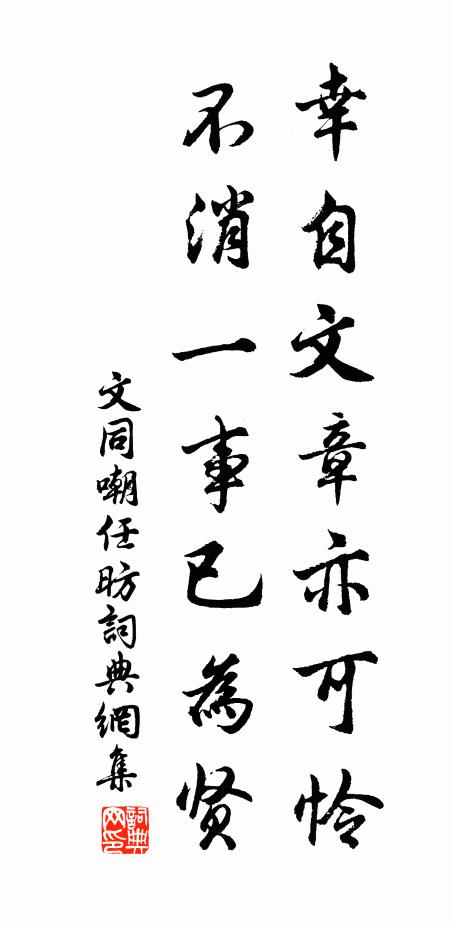 幸自文章亦可怜
不消一事已為贤
文同嘲任昉詞典網集
詞典网印